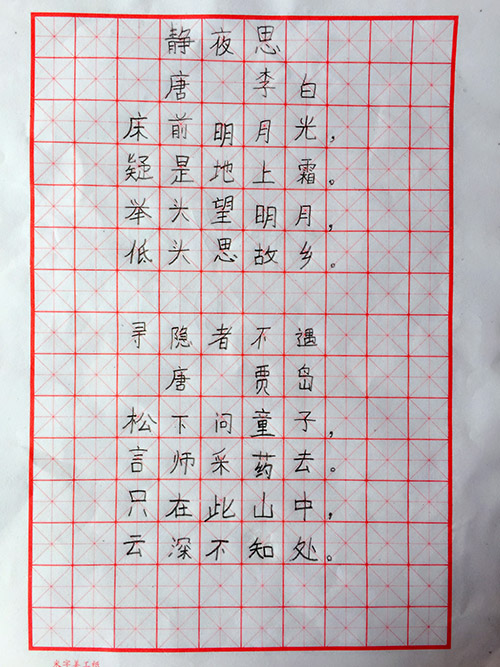 静夜思
唐 李白
床前明月光，
疑是地上霜。
举头望明月，
低头思故乡。
寻隐者不遇
唐 贾岛
松下问童子，
言师采药去。
只在此山中，
云深不知处。